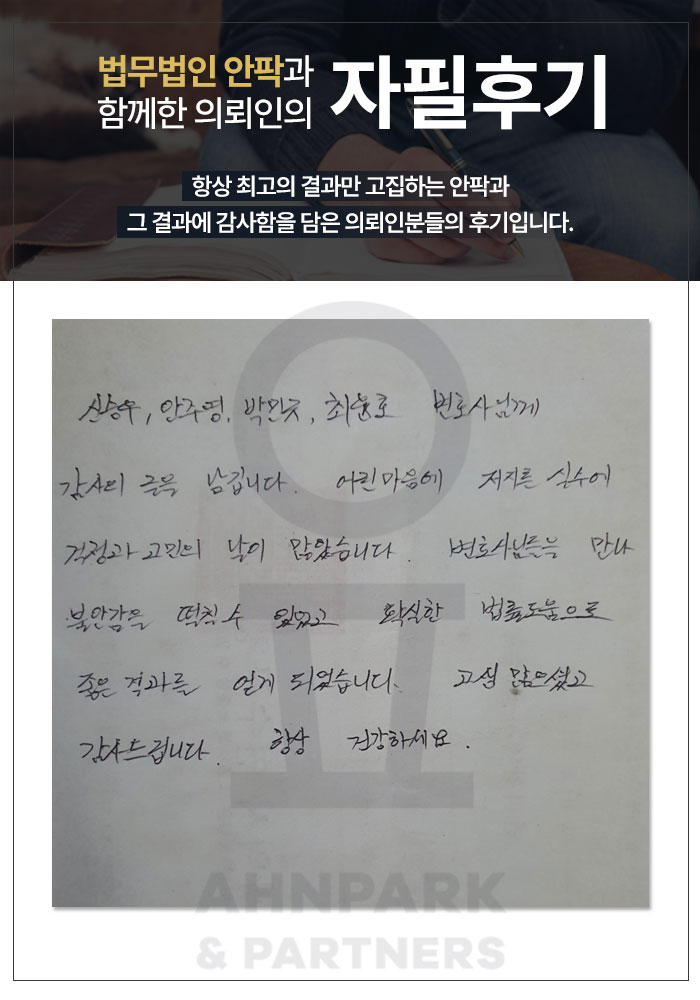 법무법인 안팍과
함께한 의뢰인의
자필후기
항상 최고의 결과만 고집하는 안팍과
그 결과에 감사함을 담은 의뢰인분들의 후기입니다.
신승우, 안주영, 박민규, 최윤호 변호사님께
감사의 글을 남깁니다. 어린마음에 저지른 실수에
걱정과 고민의 날이 많았습니다. 변호사님들을 만나
불안감을 떨칠 수 있었고 확실한 법률도움으로
좋은 결과를 얻게 되었습니다. 고생 많으셨고
감사드립니다. 항상 건강하세요.
AHNPARK
& PARTNERS